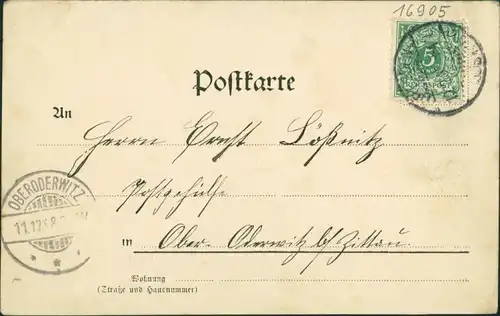 16905
5
Postkarte
An
Herrn Ernst Lößnitz
Postgehülfe
in Ober-Oderwitz b/ Zittau.
OBERODERWITZ
11.12.
Wohnung
(Straße und Hausnummer)